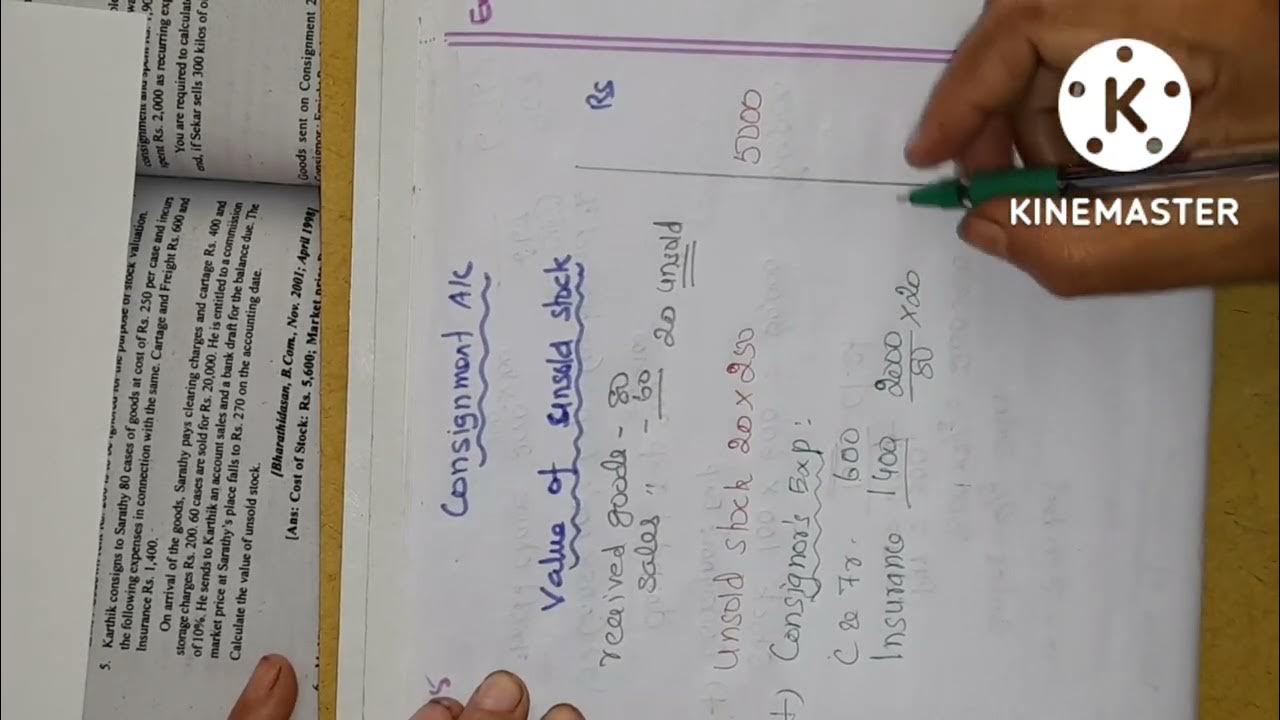 consignment and spent Rs. 1,90
spent Rs. 2,000 as recurring exp
You are required to calculat
end, if Sekar sells 300 kilos of o
Goods sent on Consignment 2
5. Karthik consigns to Sarathy 80 cases of goods at cost of Rs. 250 per case and incurs
the following expenses in connection with the same. Cartage and Freight Rs. 600 and
Insurance Rs. 1,400.
On arrival of the goods, Sarathy pays clearing charges and cartage Rs. 400 and
storage charges Rs. 200. 60 cases are sold for Rs. 20,000. He is entitled to a commission
of 10%. He sends to Karthik an account sales and a bank draft for the balance due. The
market price at Sarathy's place falls to Rs. 270 on the accounting date.
Calculate the value of unsold stock.
[Bharathidasan, B.Com., Nov. 2001; April 1998]
[Ans: Cost of Stock: Rs. 5,600; Market
Consignment A/c
Value of unsold stock
Rs
received goods - 80
Sales " - 60
20 unsold
Unsold stock 20 x 250 5000
+) Consignor's Exp:
C & Fr. 600
Insurance 1400 2000/80 x 20
K
KINEMASTER